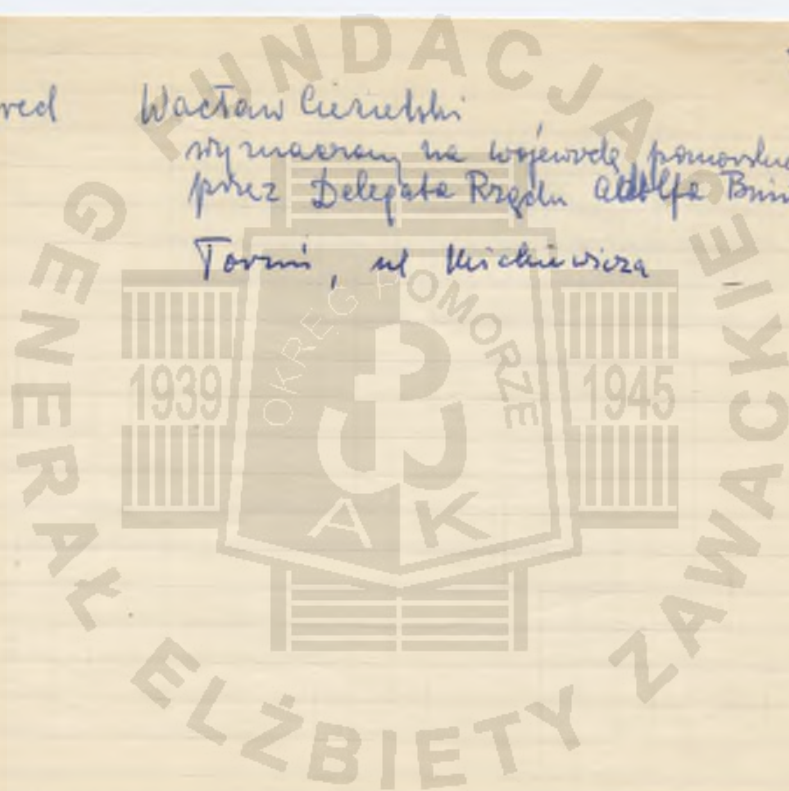 Wacław Ciesielski
wyznaczony na wojewodę
przez Delegata Rządu Adolfa
Toruń, ul Mickiewicza
FUNDACJA
GENERAŁ ELŻBIETY ZAWACKIEJ
OKRĘG POMORZE
1939
1945
A K